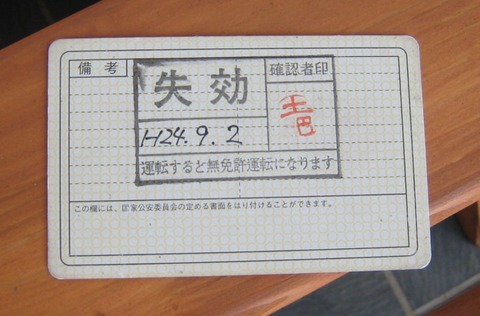 備考
失効
確認者印
H24.9.2
運転すると無免許運転になります
この欄には、国家公安委員会の定める書面をはり付けることができます。